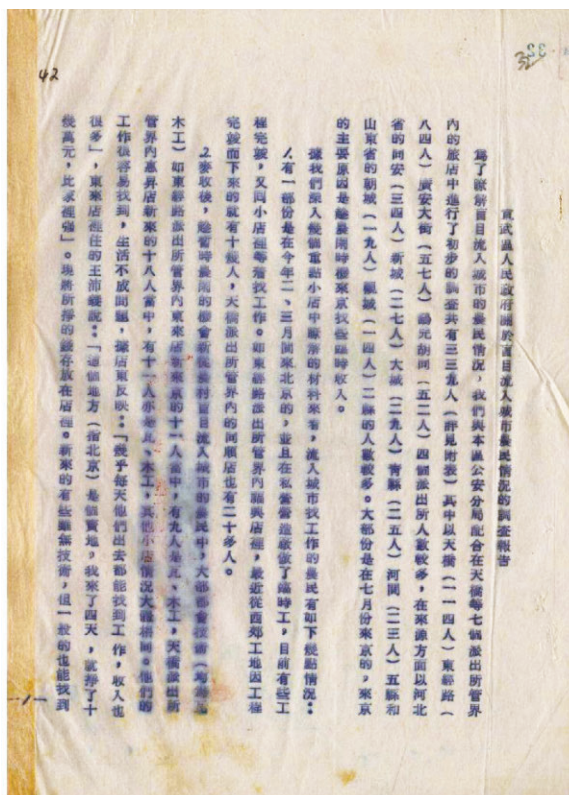 宣武區人民政府關於盲目流入城市農民情況的調查報告
爲了瞭解盲目流入城市的農民情况,我們與本區公安分局配合在天橋等七個派出所管界
內的旅店中進行了初步的調查共有三三九人(詳見附表)其中以天橋(一一四人)東經路(
八四人)廣安大街(五七人)鷂兒胡同(五二人)四個派出所人數較多,在來源方面以河北
省的同安(三四人)新城(二七人)大城(二九人)青縣(二五人)河間(二三人)五縣和
山東省的朝城(一九人)觀城(一四人)二縣的人數較多。大部份是在七月份來京的,來京
的主要原因是趁農閒時機來京找些臨時收入。
據我們深入幾個重點小店中瞭解的材料來看,流入城市找工作的農民有如下幾點情況:
1.有一部份是在今年二、三月間來北京的,並且在私營營造廠做了臨時工,目前有些工
程完竣,又回小店裡等着找工作。如東經路派出所管界內龍興店裡,最近從西郊工地因工程
完竣而下來的就有十幾人,天橋派出所管界內的同順店也有二十多人。
2.麥收後,趁暫時農閒的機會新從農村盲目流入城市的農民中,大部都會技術(均爲瓦
木工)如東經路派出所管界內東來店新來京的十一人當中,有九人是瓦、木工,天橋派出所
管界內惠昇店新來的十八人當中,有十一人亦爲瓦、木工,其他小店情況大體相同。他們的
工作很容易找到,生活不成問題,據店東反映:「幾乎每天他們出去都能找到工作,收入也
很多」,東來店裡住的王沛錢說:「這個地方(指北京)是個寶地,我來了四天,就掙了十
幾萬元,比家裡強」。現將所掙的錢存放在店裡。新來的有些雖無技術,但一般的也能找到
—1—
42
32